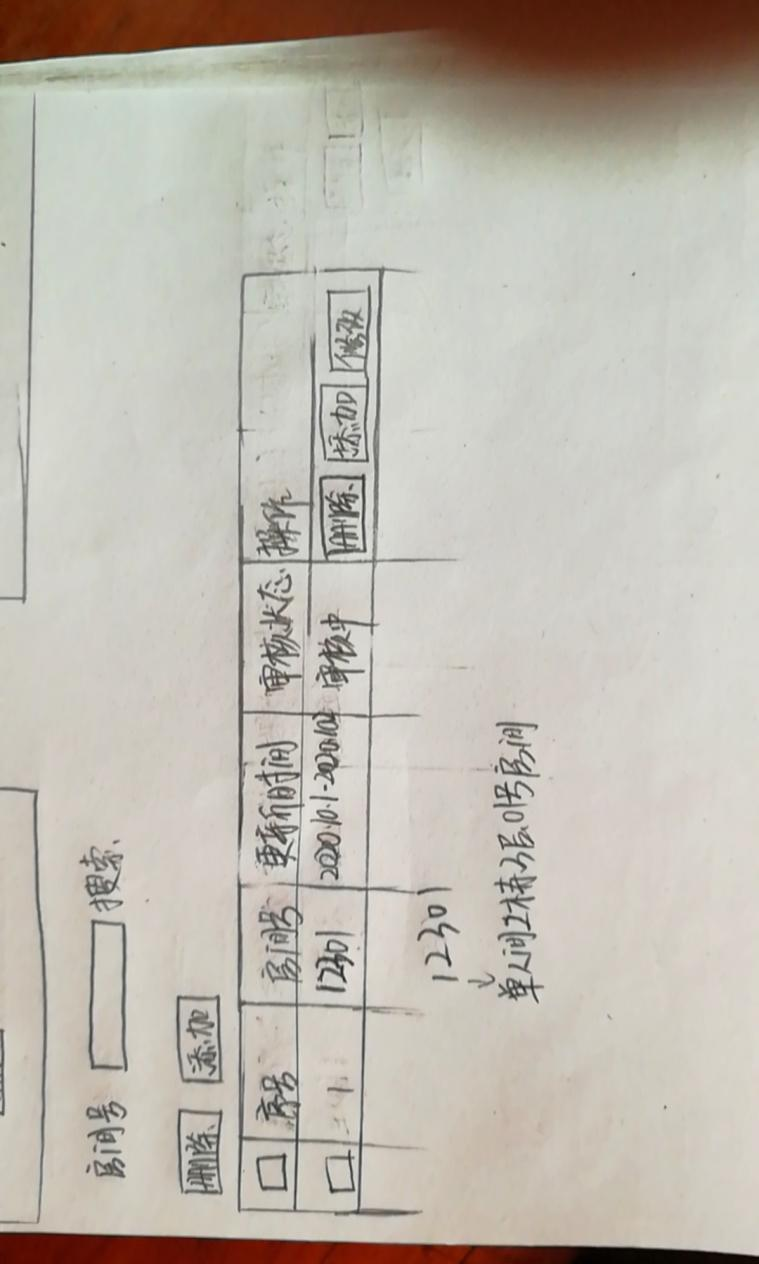 房间号 搜索
删除 添加
序号 房间号 更新时间 审核状态 操作
1 12301 2020.10.1-2020.10.2 审核中 删除 添加 修改
12301
单人间2栋3层01号房间